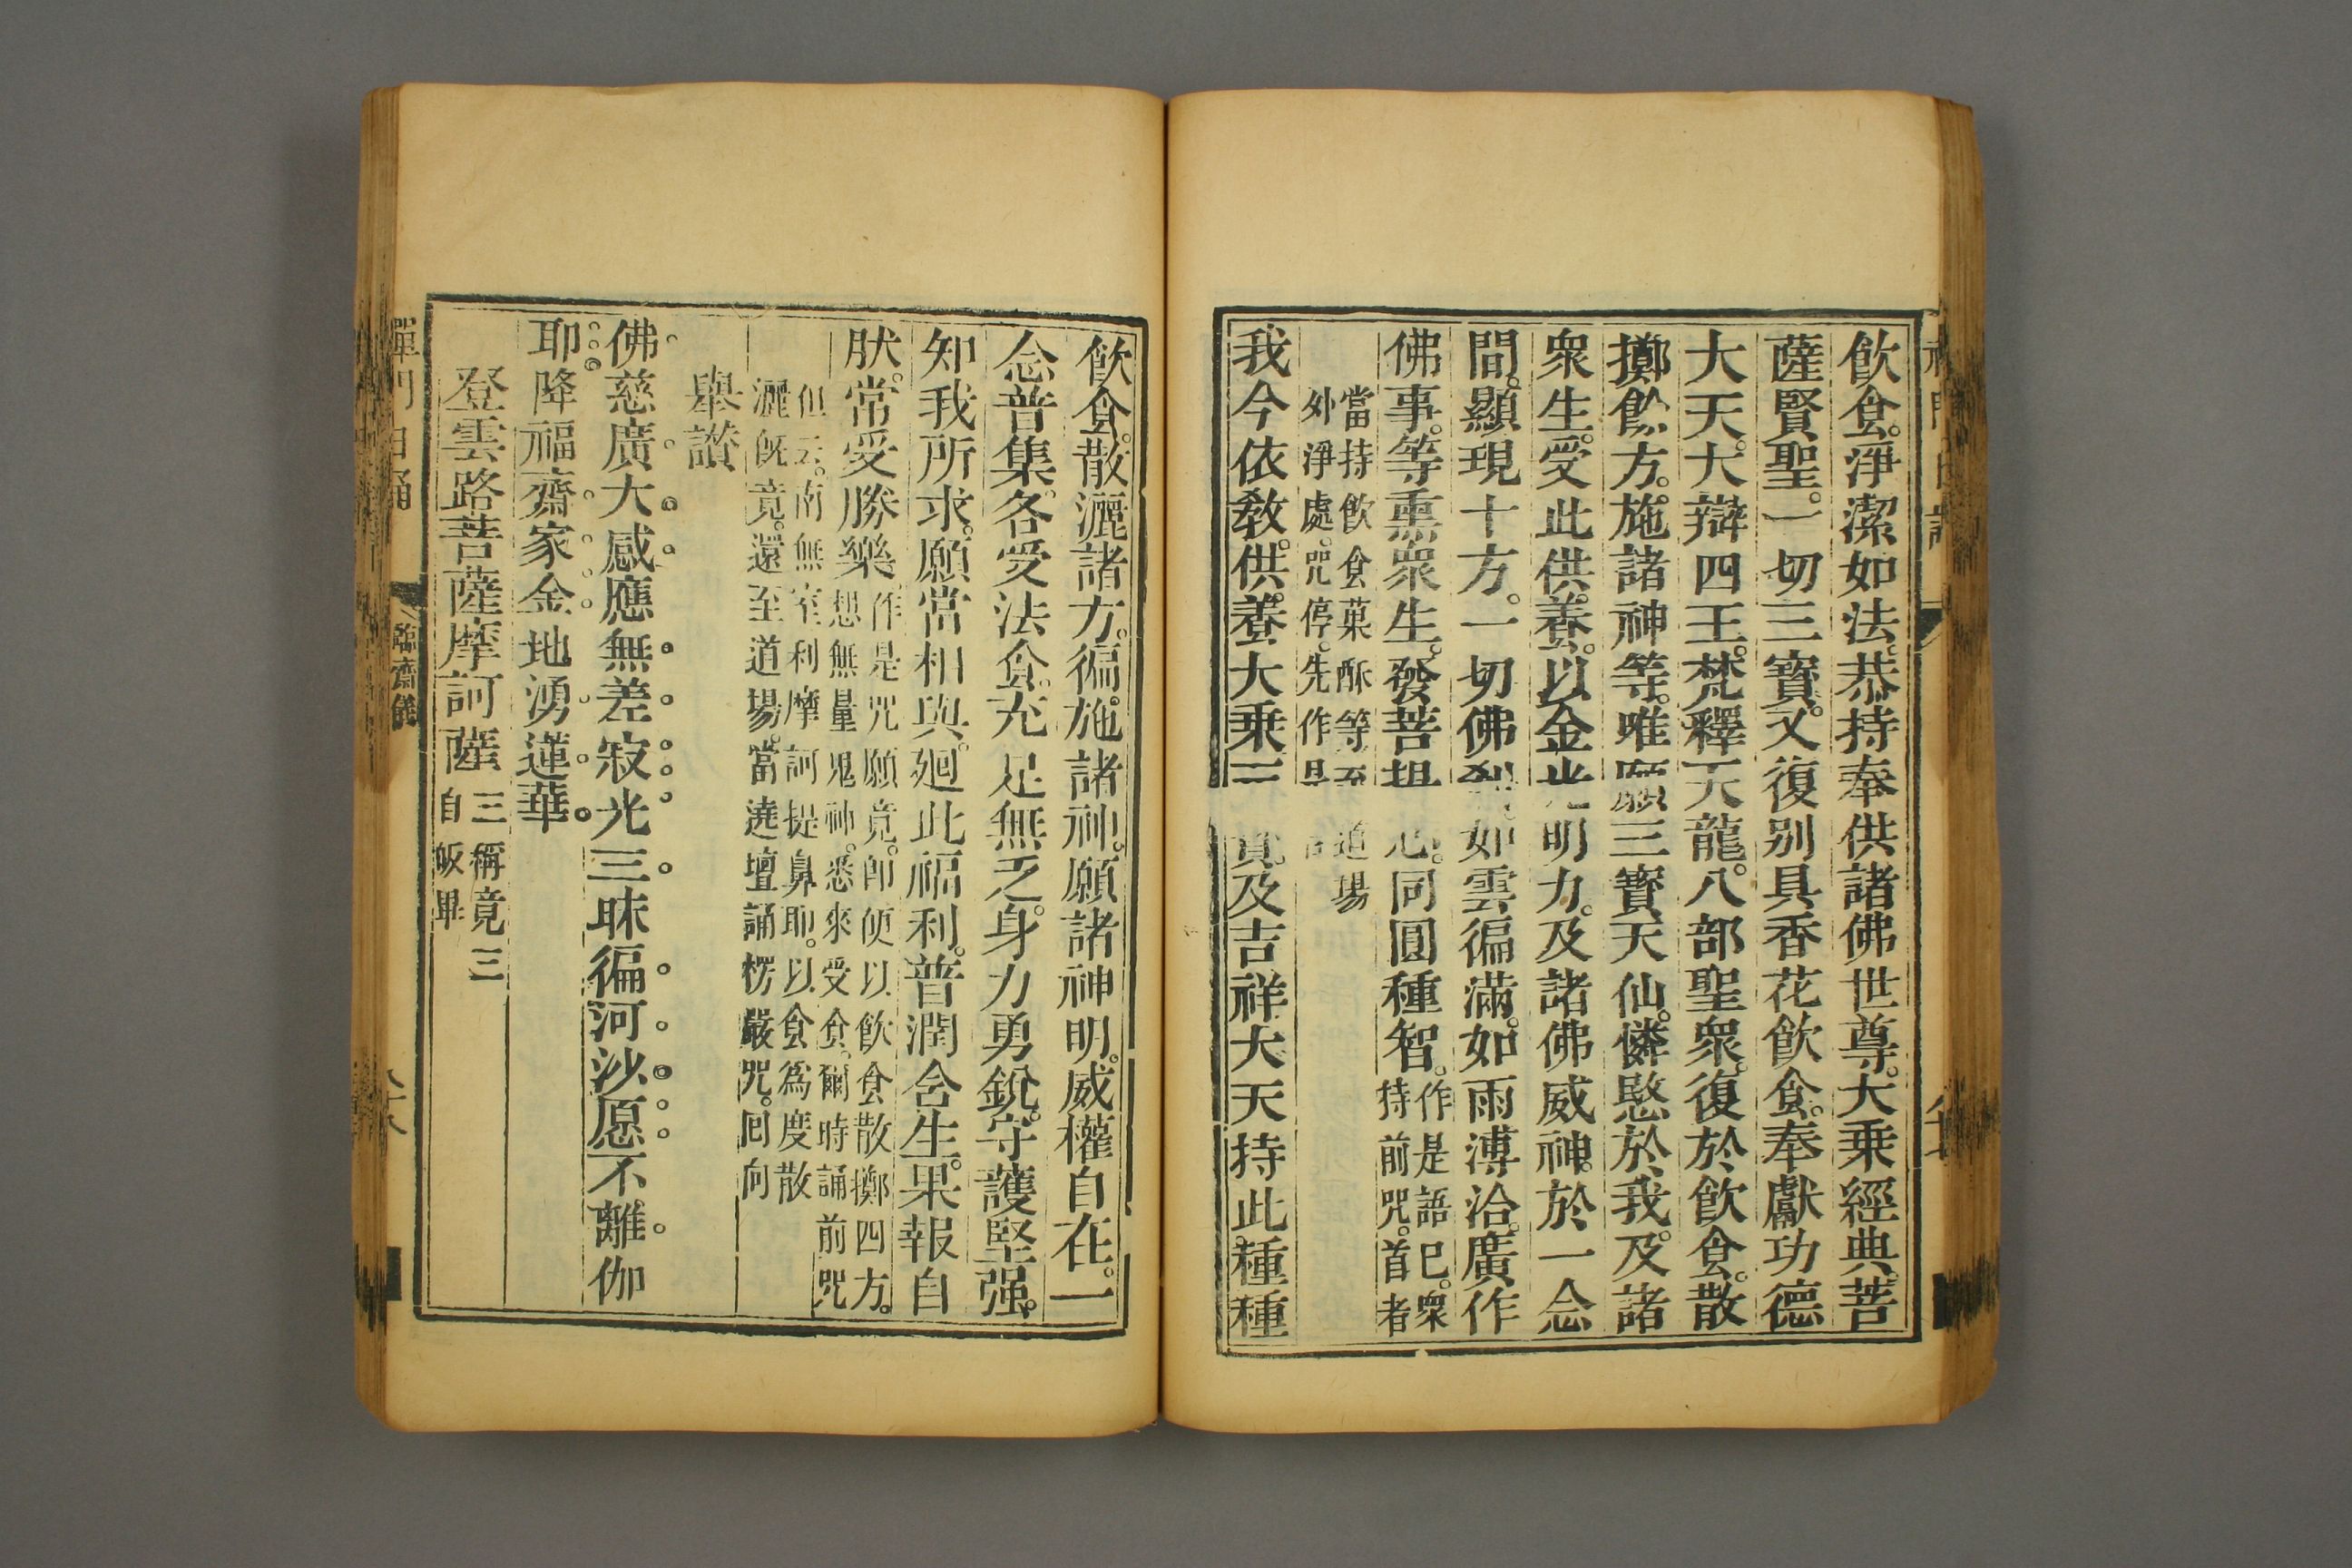 飲食。淨潔如法。恭持奉供諸佛世尊。大乘經典。菩
薩賢聖。一切三寶。又復别具香花飲食。奉獻功德
大天。大辯四王。梵釋天龍。八部聖衆。復於飲食。散
擲餘方。施諸神等。唯願三寶天仙。憐愍於我。及諸
衆生。受此供養。以金光明力。及諸佛威神。於一念
間。顯現十方。一切佛刹。如雲徧滿。如雨溥洽。廣作
佛事。等熏衆生。發菩提心。同圓種智。
作是語已。衆
持前咒。首者
當持飲食菓酥等至道場
外淨處。咒停。先作是
我今依教。供養大乘三寶及吉祥大天持此。種種
飲食。散灑諸方。徧施諸神。願諸神明。威權自在。一
念普集。各受法食。充足無乏。身力勇銳。守護堅强。
知我所求。願當相與。廻此福利。普潤含生。果報自
肰。常受勝樂。
作是咒願竟。即便以飲食散擲四方。
想無量鬼神。悉來受食。爾時誦前咒
但云。南無室利摩訶提鼻耶。以食爲度散
灑旣竟。還至道場。當遶壇誦楞嚴咒。回向
舉讃
佛慈廣大感應無差寂光三昧徧河沙愿不離伽
耶降福齋家金地湧蓮華
登雲路菩薩摩訶薩
三稱竟三
自皈畢
臨齋儀